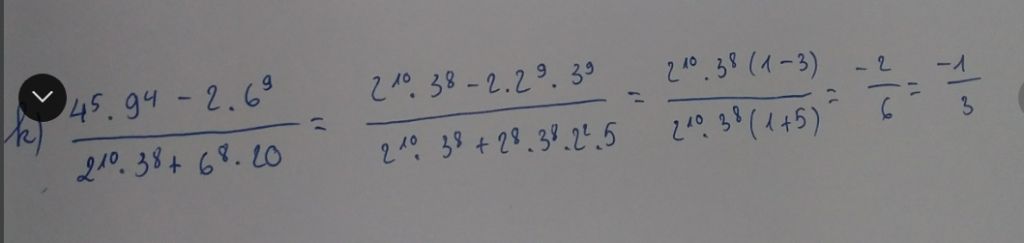 k) \frac{4^5 . 9^4 - 2 . 6^9}{2^{10} . 3^8 + 6^8 . 20} = \frac{2^{10} . 3^8 - 2 . 2^9 . 3^9}{2^{10} . 3^8 + 2^8 . 3^8 . 2^2 . 5} = \frac{2^{10} . 3^8 (1 - 3)}{2^{10} . 3^8 (1 + 5)} = \frac{-2}{6} = \frac{-1}{3}